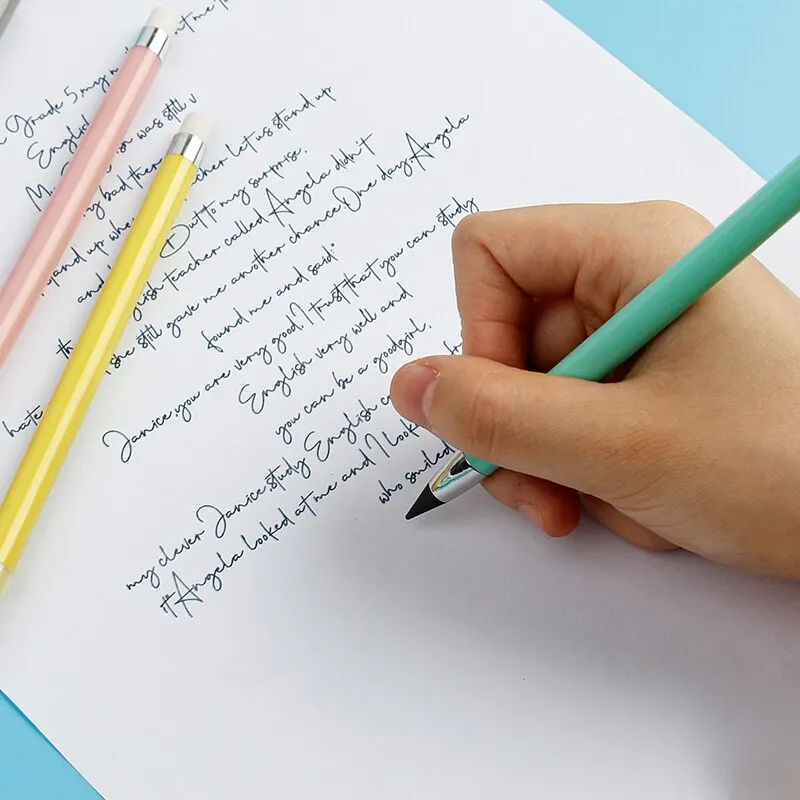 at me
Grade 5, my
English
was still
my bad let us stand up
stand up whe
and But to my surprise,
teacher called Angela didn't
she still gave me another chance. One day, Angela
found me and said"
hate Janice, you are very good. I trust that you can study
English very well and
you can be a good girl,
my clever Janice, study English
it" Angela looked at me and I look
who smiled